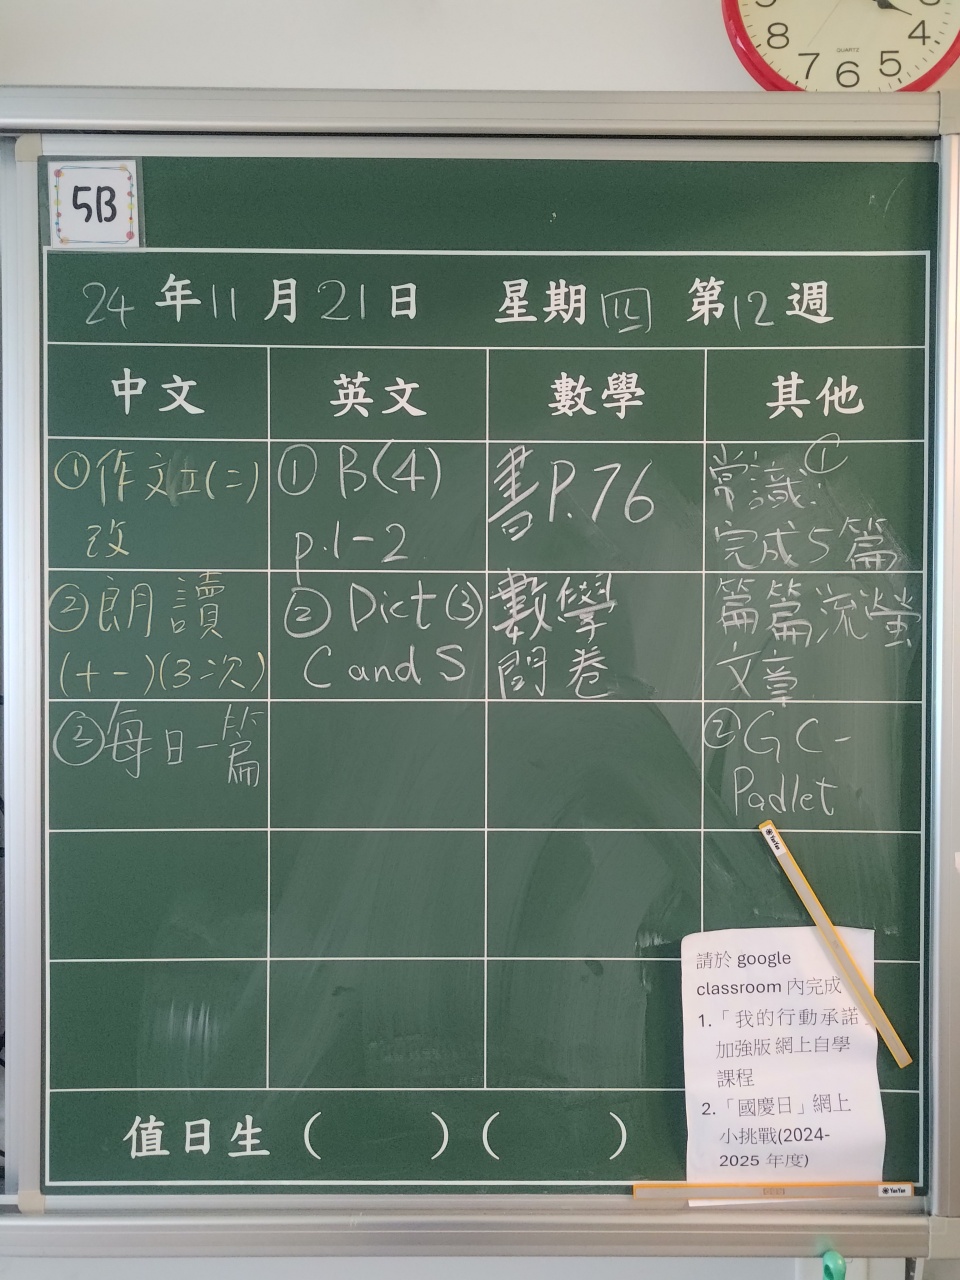 8 7 6 5 4
QUARTZ
5B
24年11月21日 星期四 第12週
中文 英文 數學 其他
①作文工(二)
改
②朗讀
(十一)(3次)
③每日一篇
① B(4)
p.1-2
② Dict(3)
C and S
書P.76
數學
問卷
常識:①
完成5篇
篇篇流螢
文章
②GC-
Padlet
請於 google
classroom 內完成
1.「我的行動承諾」
加強版網上自學
課程
2.「國慶日」網上
小挑戰(2024-
2025 年度)
值日生 ( ) ( )
YanYan
YanYan